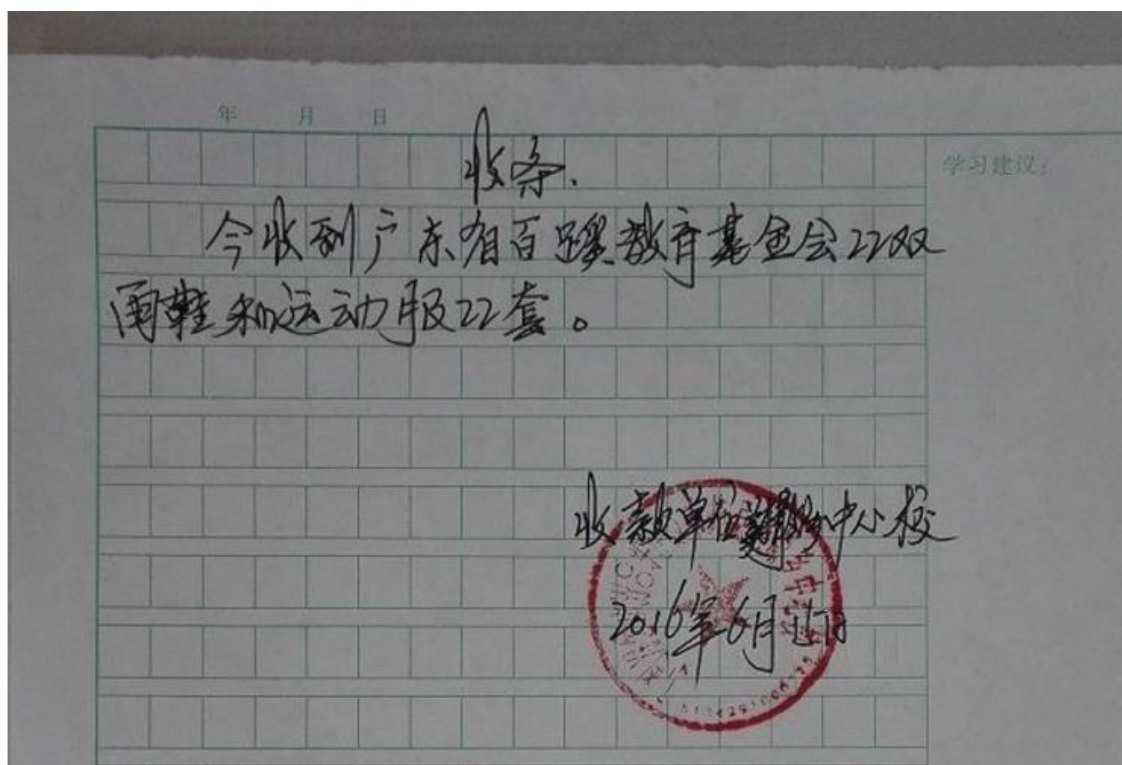 年 月 日
收条.
学习建议:
今收到广东省百蹊教育基金会22双
雨鞋和运动服22套。
收款单位 中小校
2016年6月17日